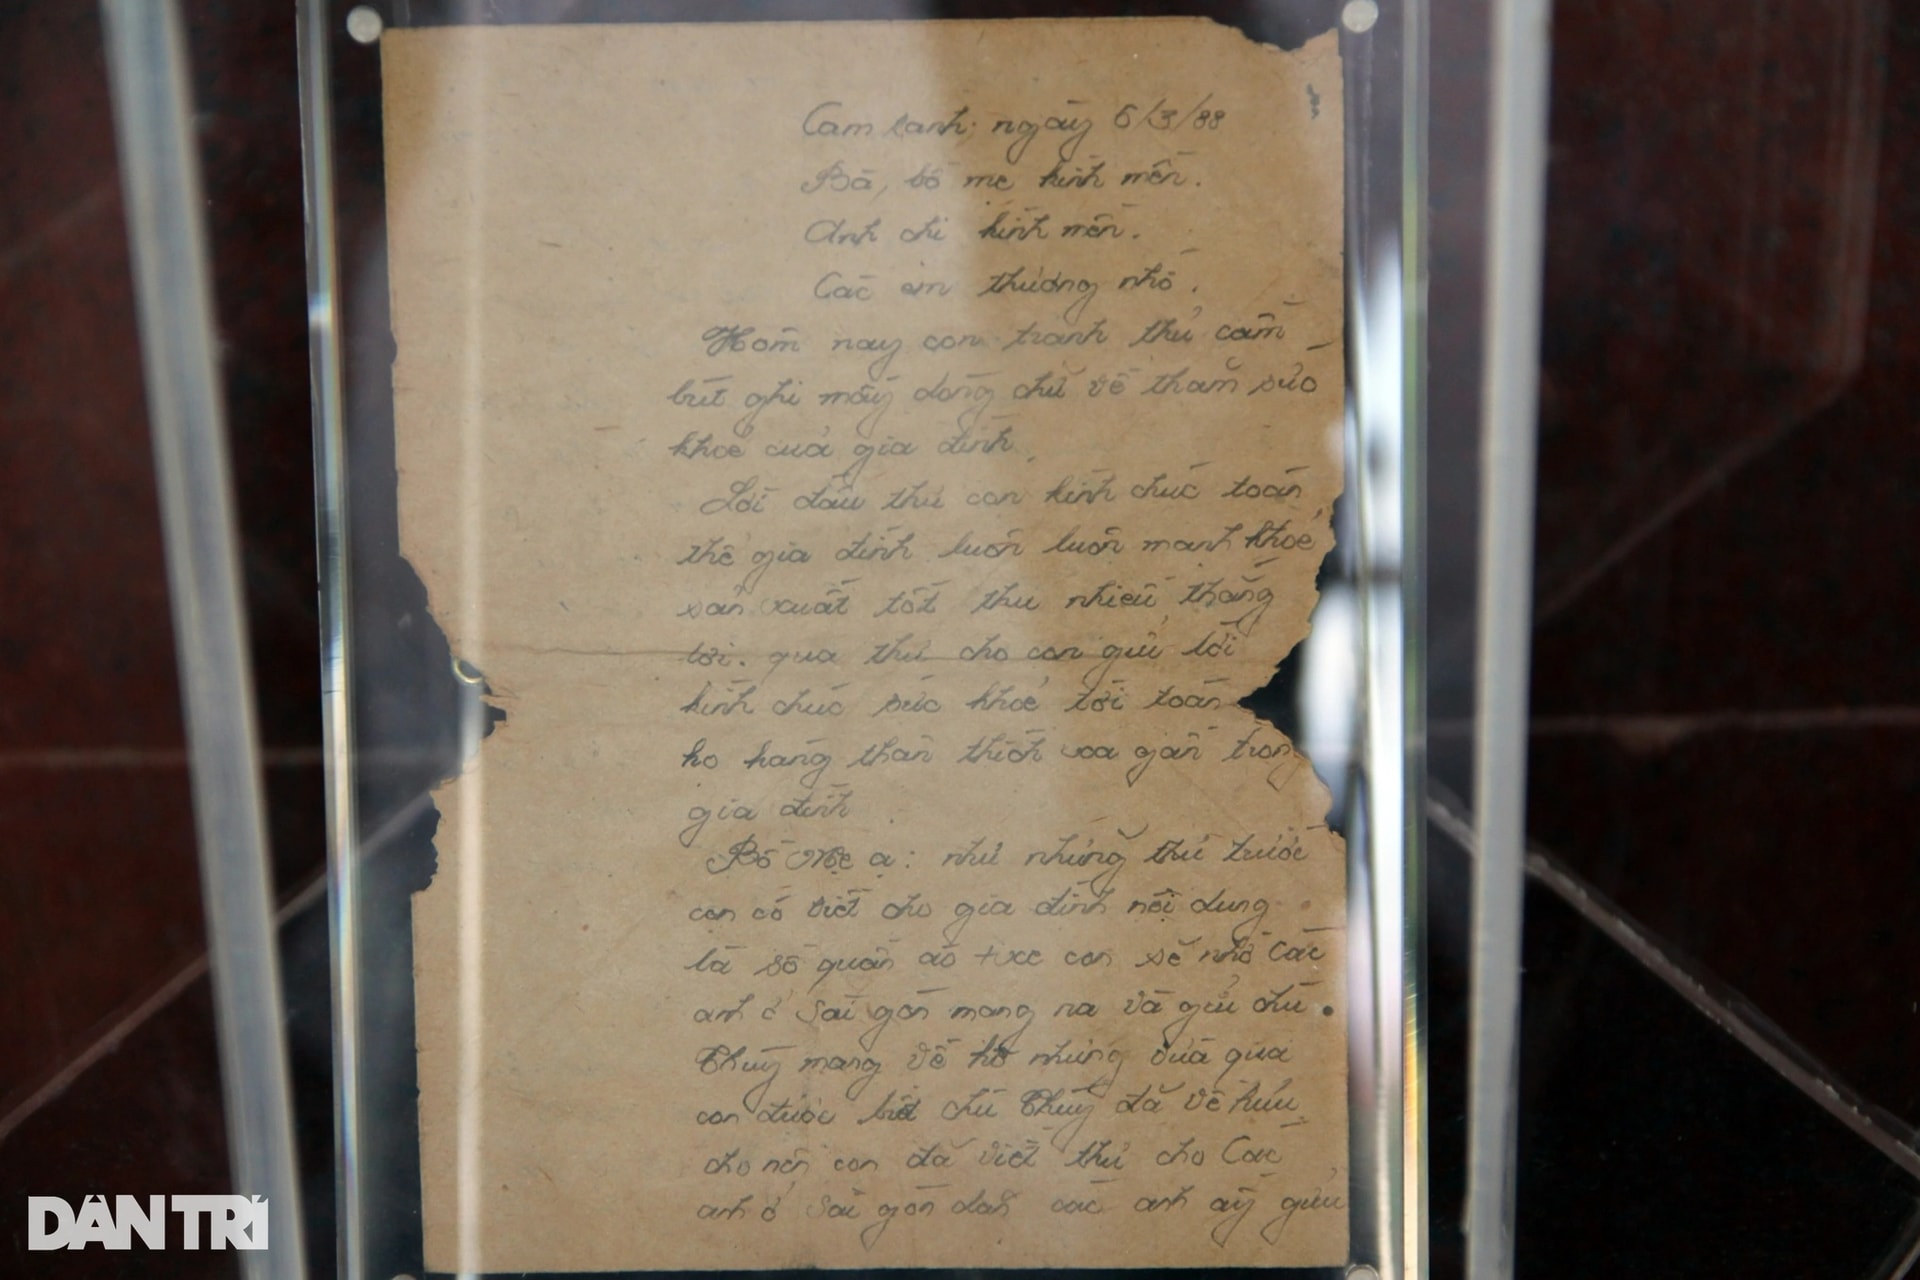 Cam Ranh, ngày 6/3/88
Bà, bố mẹ kính mến.
Anh chị kính mến.
Các em thương nhớ.
Hôm nay con tranh thủ cầm
bút ghi mấy dòng chữ về thăm sức
khoẻ của gia đình.
Lời đầu thư con kính chúc toàn
thể gia đình luôn luôn mạnh khoẻ
sản xuất tốt thu nhiều thắng
lợi. qua thư cho con gửi lời
kính chúc sức khoẻ tới toàn
họ hàng thân thích xa gần trong
gia đình
Bố Mẹ ạ: như những thư trước
con có viết cho gia đình nội dung
là số quần áo + xe con sẽ nhờ các
anh ở Sài gòn mang ra và gửi chú
Thuý mang về hộ nhưng vừa qua
con được biết chú Thuý đã về hưu
cho nên con đã viết thư cho Các
anh ở Sài gòn dặn các anh ấy gửi
DÂN TRÍ